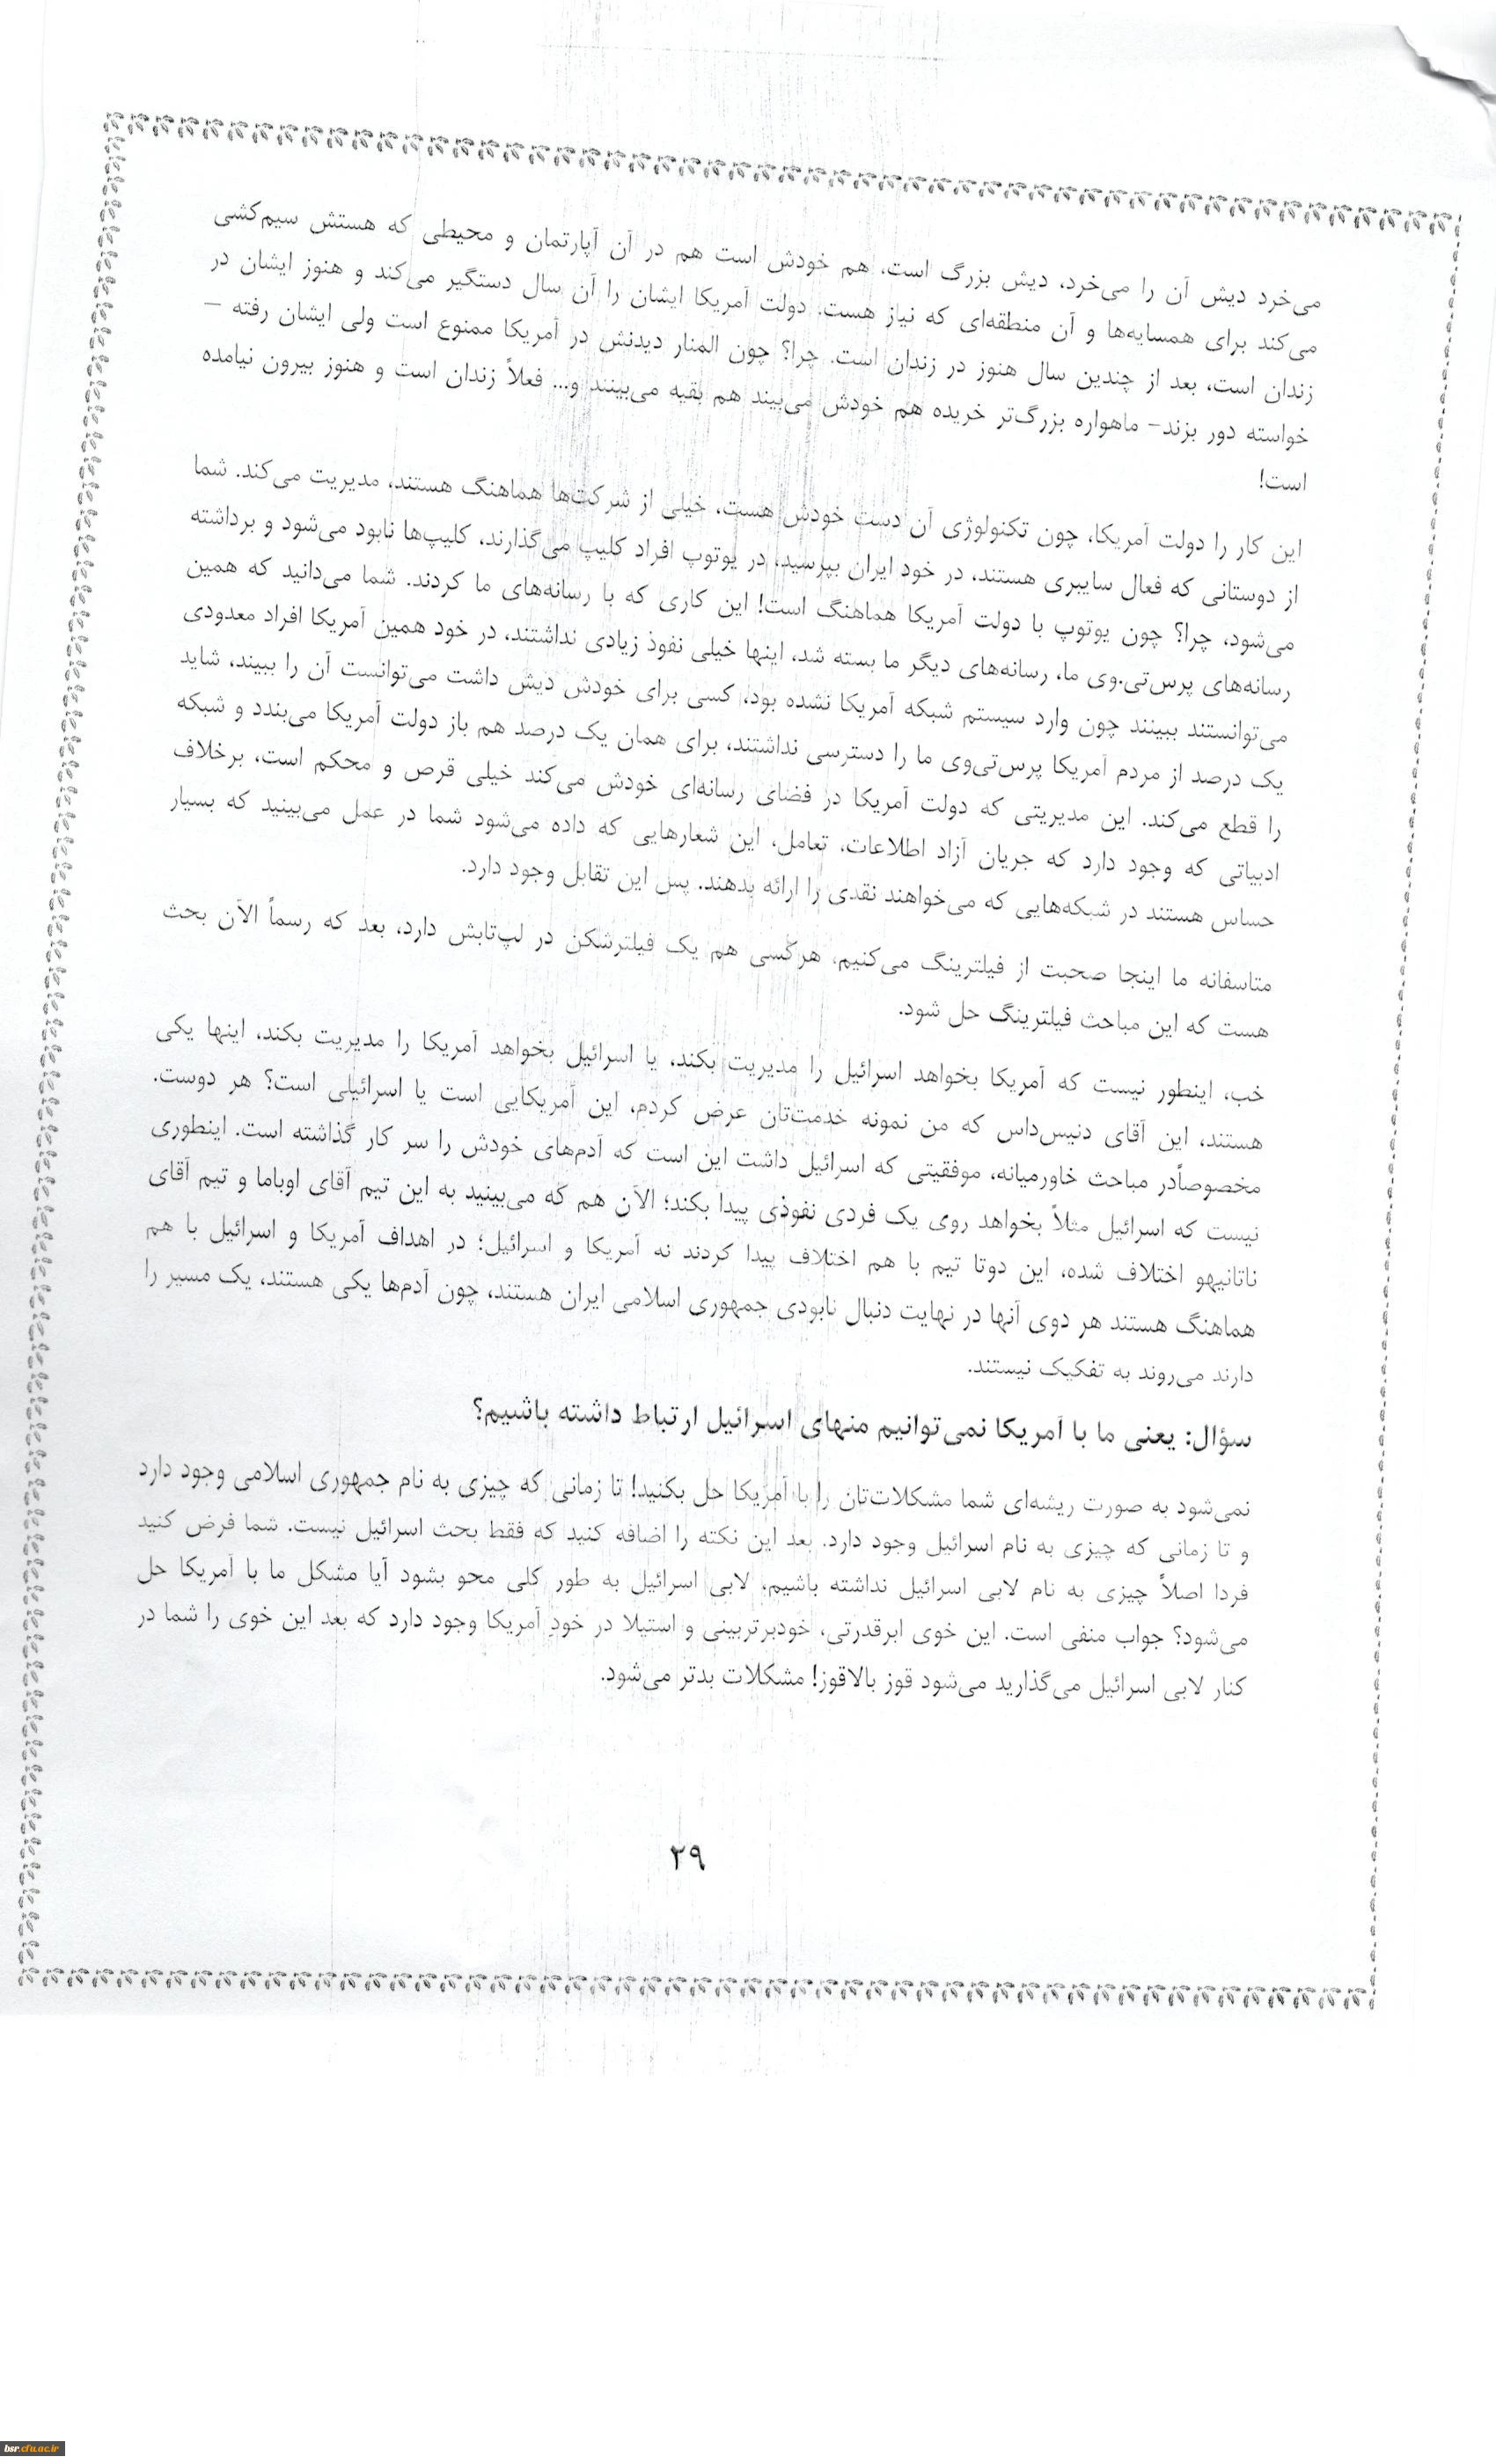 می‌خرد دیش آن را می‌خرد، دیش بزرگ است، هم خودش است هم در آن آپارتمان و محیطی که هستش سیم‌کشی
می‌کند برای همسایه‌ها و آن منطقه‌ای که نیاز هست. دولت آمریکا ایشان را آن سال دستگیر می‌کند و هنوز ایشان در
زندان است، بعد از چندین سال هنوز در زندان است. چرا؟ چون المنار دیدنش در آمریکا ممنوع است ولی ایشان رفته –
خواسته دور بزند- ماهواره بزرگ‌تر خریده هم خودش می‌بیند هم بقیه می‌بینند و... فعلاً زندان است و هنوز بیرون نیامده
است!
این کار را دولت آمریکا، چون تکنولوژی آن دست خودش هست، خیلی از شرکت‌ها هماهنگ هستند، مدیریت می‌کند. شما
از دوستانی که فعال سایبری هستند، در خود ایران بپرسید، در یوتوپ افراد کلیپ می‌گذارند، کلیپ‌ها نابود می‌شود و برداشته
می‌شود، چرا؟ چون یوتوپ با دولت آمریکا هماهنگ است! این کاری که با رسانه‌های ما کردند. شما می‌دانید که همین
رسانه‌های پرس‌تی.وی ما، رسانه‌های دیگر ما بسته شد، اینها خیلی نفوذ زیادی نداشتند، در خود همین آمریکا افراد معدودی
می‌توانستند ببینند چون وارد سیستم شبکه آمریکا نشده بود، کسی برای خودش دیش داشت می‌توانست آن را ببیند، شاید
یک درصد از مردم آمریکا پرس‌تی‌وی ما را دسترسی نداشتند، برای همان یک درصد هم باز دولت آمریکا می‌بندد و شبکه
را قطع می‌کند. این مدیریتی که دولت آمریکا در فضای رسانه‌ای خودش می‌کند خیلی قرص و محکم است، برخلاف
ادبیاتی که وجود دارد که جریان آزاد اطلاعات، تعامل، این شعارهایی که داده می‌شود شما در عمل می‌بینید که بسیار
حساس هستند در شبکه‌هایی که می‌خواهند نقدی را ارائه بدهند. پس این تقابل وجود دارد.
متاسفانه ما اینجا صحبت از فیلترینگ می‌کنیم، هرکسی هم یک فیلترشکن در لپ‌تابش دارد، بعد که رسماً الآن بحث
هست که این مباحث فیلترینگ حل شود.
خب، اینطور نیست که آمریکا بخواهد اسرائیل را مدیریت بکند، یا اسرائیل بخواهد آمریکا را مدیریت بکند، اینها یکی
هستند، این آقای دنیس‌داس که من نمونه خدمت‌تان عرض کردم، این آمریکایی است یا اسرائیلی است؟ هر دوست.
مخصوصاًدر مباحث خاورمیانه، موفقیتی که اسرائیل داشت این است که آدم‌های خودش را سر کار گذاشته است. اینطوری
نیست که اسرائیل مثلاً بخواهد روی یک فردی نفوذی پیدا بکند؛ الآن هم که می‌بینید به این تیم آقای اوباما و تیم آقای
ناتانیهو اختلاف شده، این دوتا تیم با هم اختلاف پیدا کردند نه آمریکا و اسرائیل؛ در اهداف آمریکا و اسرائیل با هم
هماهنگ هستند هر دوی آنها در نهایت دنبال نابودی جمهوری اسلامی ایران هستند، چون آدم‌ها یکی هستند، یک مسیر را
دارند می‌روند به تفکیک نیستند.
سؤال: یعنی ما با آمریکا نمی‌توانیم منهای اسرائیل ارتباط داشته باشیم؟
نمی‌شود به صورت ریشه‌ای شما مشکلات‌تان را با آمریکا حل بکنید! تا زمانی که چیزی به نام جمهوری اسلامی وجود دارد
و تا زمانی که چیزی به نام اسرائیل وجود دارد. بعد این نکته را اضافه کنید که فقط بحث اسرائیل نیست. شما فرض کنید
فردا اصلاً چیزی به نام لابی اسرائیل نداشته باشیم، لابی اسرائیل به طور کلی محو بشود آیا مشکل ما با آمریکا حل
می‌شود؟ جواب منفی است. این خوی ابرقدرتی، خودبرتربینی و استیلا در خودِ آمریکا وجود دارد که بعد این خوی را شما در
کنار لابی اسرائیل می‌گذارید می‌شود قوز بالاقوز! مشکلات بدتر می‌شود.
۲۹
bsr.cfu.ac.ir